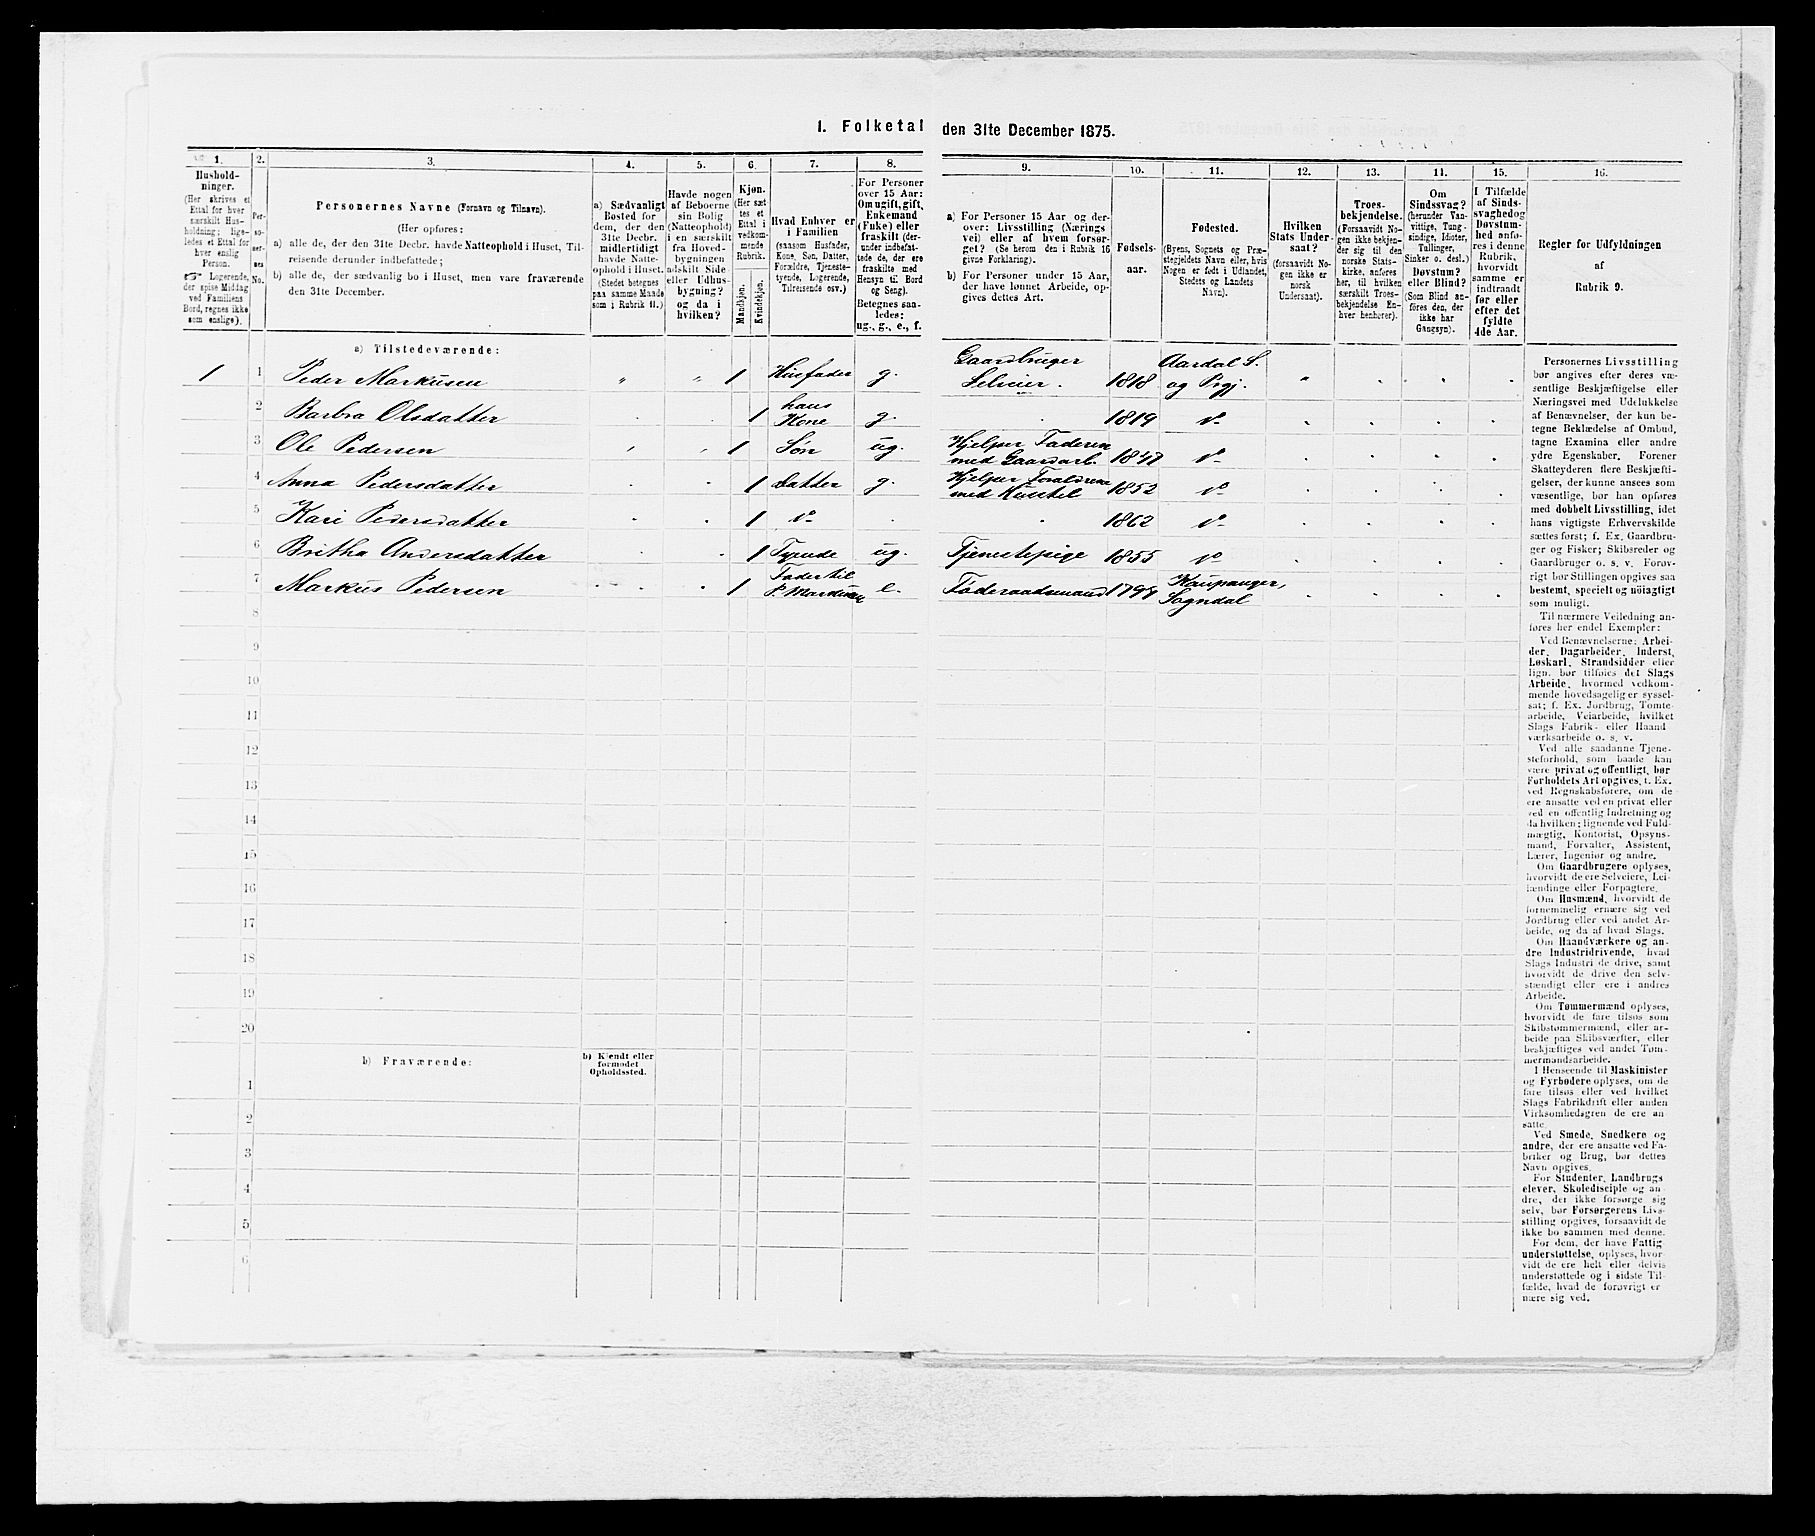 1. Folketal den 31te December 1875.
1.
2.
3.
4.
5.
6.
7.
8.
9.
10.
11.
12.
13.
11.
15.
16.
Hushold-
ninger.
(Her skrives et
Ettal for hver
særskilt Hus-
holdning; lige-
ledes et Ettal for
hver enslig
Person.
☞ Logerende,
der spise Middag
ved Familiens
Bord, regnes ikke
som enslige).
Per-
so-
ner-
nes
No.
Personernes Navne (Fornavn og Tilnavn).
(Her opføres:
a) alle de, der den 31te Decbr. havde Natteophold i Huset, Til-
reisende derunder indbefattede;
b) alle de, der sædvanlig bo i Huset, men vare fraværende
den 31te December.
a) Sædvanligt
Bosted for
dem, der den
31te Decbr.
midlertidigt
havde Natte-
ophold i Huset.
(Stedet betegnes
paa samme Maade
som i Rubrik 11.)
Havde nogen
af Beboerne
sin Bolig
(Natteophold)
i en særskilt
fra Hoved-
bygningen
adskilt Side-
eller Udhus-
bygning?
og da i
hvilken?
Kjøn.
(Her sæt-
tes et
Ettal i
vedkom-
mende
Rubrik.
Mandkjøn.
Kvindekjøn.
Hvad Enhver er
i Familien
(saasom Husfader,
Kone, Søn, Datter,
Forældre, Tjeneste-
tyende, Logerende,
Tilreisende osv.)
For Personer
over 15 Aar:
Om ugift, gift,
Enkemand
(Enke) eller
fraskilt (der-
under indbefat-
tede de, der ere
fraskilte med
Hensyn til Bord
og Seng).
Betegnes saa-
ledes:
ug., g., e., f.
a) For Personer 15 Aar og der-
over: Livsstilling (Nærings-
vei) eller af hvem forsør-
get? (Se herom den i Rubrik 16
givne Forklaring).
b) For Personer under 15 Aar,
der have lønnet Arbeide, op-
gives dettes Art.
Fødsels-
aar.
Fødested.
(Byens, Sognets og Præ-
stegjeldets Navn eller, hvis
Nogen er født i Udlandet,
Stedets og Landets
Navn).
Hvilken
Stats Under-
saat?
(forsaavidt No-
gen ikke er
norsk
Undersaat).
Troes-
bekjendelse.
(Forsaavidt No-
gen ikke bekjen-
der sig til den
norske Stats-
kirke, anføres
her, til hvilken
særskilt Troes-
bekjendelse En-
hver henhører).
Om
Sindssvag?
(herunder Van-
vittige, Tung-
sindige, Idioter,
Tullinger,
Sinker o. desl.)
Døvstum?
eller Blind?
(Som Blind an-
føres den, der
ikke har
Gangsyn).
I Tilfælde
af Sinds-
svaghed og
Døvstum-
hed anfø-
res i denne
Rubrik,
hvorvidt
samme er
indtraadt
før eller
efter det
fyldte
4de Aar.
Regler for Udfyldningen
af
Rubrik 9.
a) Tilstedeværende:
1 1 Peder Markusen " " 1 Husfader g. Gaardbruger Selveier. 1818 Aardal S. og Prgj. "
2 Barbra Olsdatter 1 hans Kone g. 1819 do
3 Ole Pedersen " 1 Søn ug. Hjelper Faderen med Gaardarb. 1848 do
4 Anna Pedersdatter 1 Datter g. Hjelper Forældrene med Husstel 1852 do
5 Kari Pedersdatter 1 do 1862 do
6 Britha Andersdatter 1 Tyende ug. Tjenestepige 1855 do
7 Markus Pedersen 1 Fader til P. Markusen e. Føderaadsmand 1799 Kaupanger, Sogndal
8
9
10
11
12
13
14
15
16
17
18
19
20
b) Fraværende:
b) Kjendt eller
formodet
Opholdssted.
1
2
3
4
5
6
Personernes Livsstilling
bør angives efter deres væ-
sentlige Beskjæftigelse eller
Næringsvei med Udelukkelse
af Benævnelser, der kun be-
tegne Beklædelse af Ombud,
tagne Examina eller andre
ydre Egenskaber. Forener
Skatteyderen flere Beskjæfti-
gelser, der kunne ansees som
væsentlige, bør han opføres
med dobbelt Livsstilling, idet
hans vigtigste Erhvervskilde
sættes først; f. Ex. Gaardbru-
ger og Fisker; Skibsreder og
Gaardbruger o. s. v. Forøv-
rigt bør Stillingen opgives saa
bestemt, specielt og nöiagtigt
som muligt.
Til nærmere Veiledning an-
føres her endel Exempler:
Ved Benævnelserne: Arbei-
der, Dagarbeider, Inderst,
Løskarl, Strandsidder eller
lign. bør tilføies det Slags
Arbeide, hvormed vedkom-
mende hovedsagelig er syssel-
sat; f. Ex. Jordbrug, Tomte-
arbeide, Veiarbeide, hvilket
Slags Fabrik- eller Haand-
værksarbeide o. s. v.
Ved alle saadanne Tjene-
steforhold, som baade kan
være privat og offentligt, bør
Forholdets Art opgives, t. Ex.
ved Regnskabsførere, om de
ere ansatte ved en privat eller
ved en offentlig Indretning og
da hvilken; lignende ved Fuld-
mægtig, Kontorist, Opsyns-
mand, Forvalter, Assistent,
Lærer, Ingeniør og andre.
Om Gaardbrugere oplyses,
hvorvidt de ere Selveiere, Lei-
lændinge eller Forpagtere.
Om Husmænd, hvorvidt de
fornemmelig ernære sig ved
Jordbrug eller ved andet Ar-
beide, og da af hvad Slags.
Om Haandværkere og an-
dre Industridrivende, hvad
Slags Industri de drive, samt
hvorvidt de drive den selv-
stændigt eller ere i andres
Arbeide.
Om Tømmermænd oplyses,
hvorvidt de fare tilsøs som
Skibstømmermænd, eller ar-
beide paa Skibsværfter, eller
beskjæftiges ved andet Tøm-
mermandsarbeide.
I Henseende til Maskinister
og Fyrbødere oplyses, om de
fare tilsøs eller ved hvilket
Slags Fabrikdrift eller anden
Virksomhedsgren de ere an-
satte.
Ved Smede, Snedkere og
andre, der ere ansatte ved Fa-
briker og Brug, bør dettes
Navn opgives.
For Studenter, Landbrugs-
elever, Skoledisciple og an-
dre, der ikke forsørge sig
selv, bør Forsørgerens Livs-
stilling opgives, forsaavidt de
ikke bo sammen med denne.
For dem, der have Fattig-
understøttelse, oplyses, hvor-
vidt de ere helt eller delvis
understøttede og i sidste Til-
fælde, hvad de forøvrigt er-
nære sig ved.